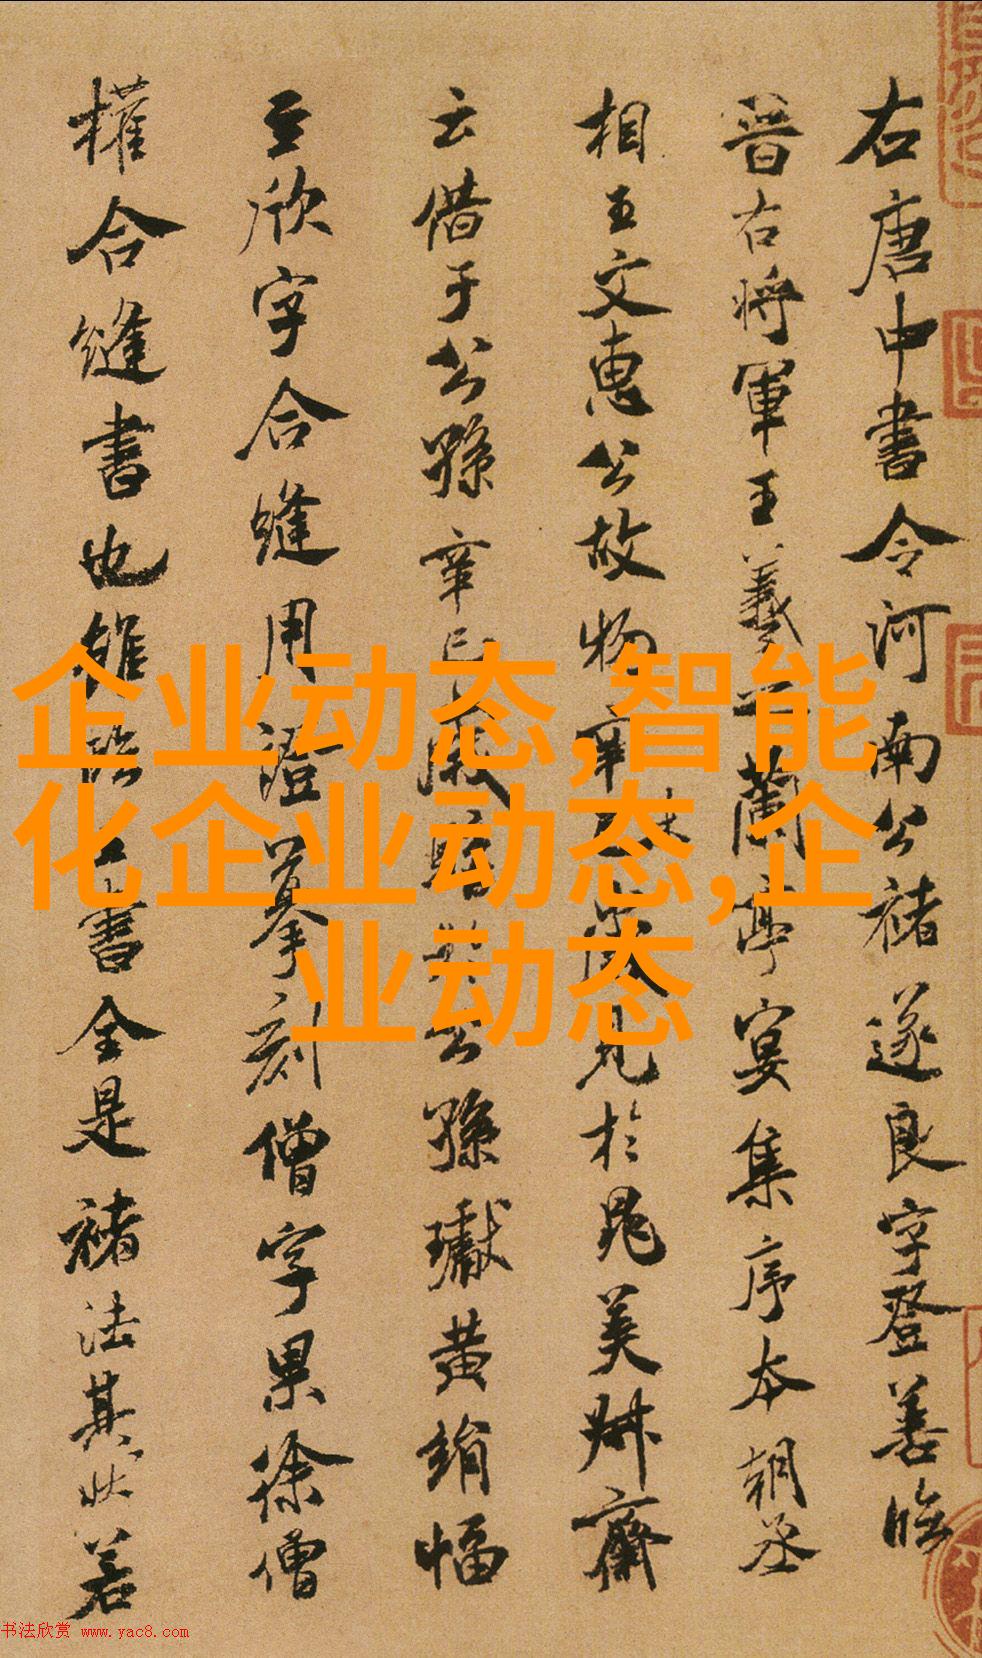 右唐中書令河南公褚遂良字登善臨
晉右将軍王羲之蘭亭宴集序本朝丞
相王文惠公故物辛未歲見於晁美叔齋
云借于公孫辛巳歲購於公孫瓛黃絹幅
至欣字合縫用證摹刻僧字果徐僧
權合縫書也雖臨王書全是褚法其狀若
企业动态,智能
化企业动态,企
业动态
书法欣赏 www.yac8.com